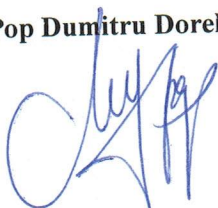 Pop Dumitru Dorel